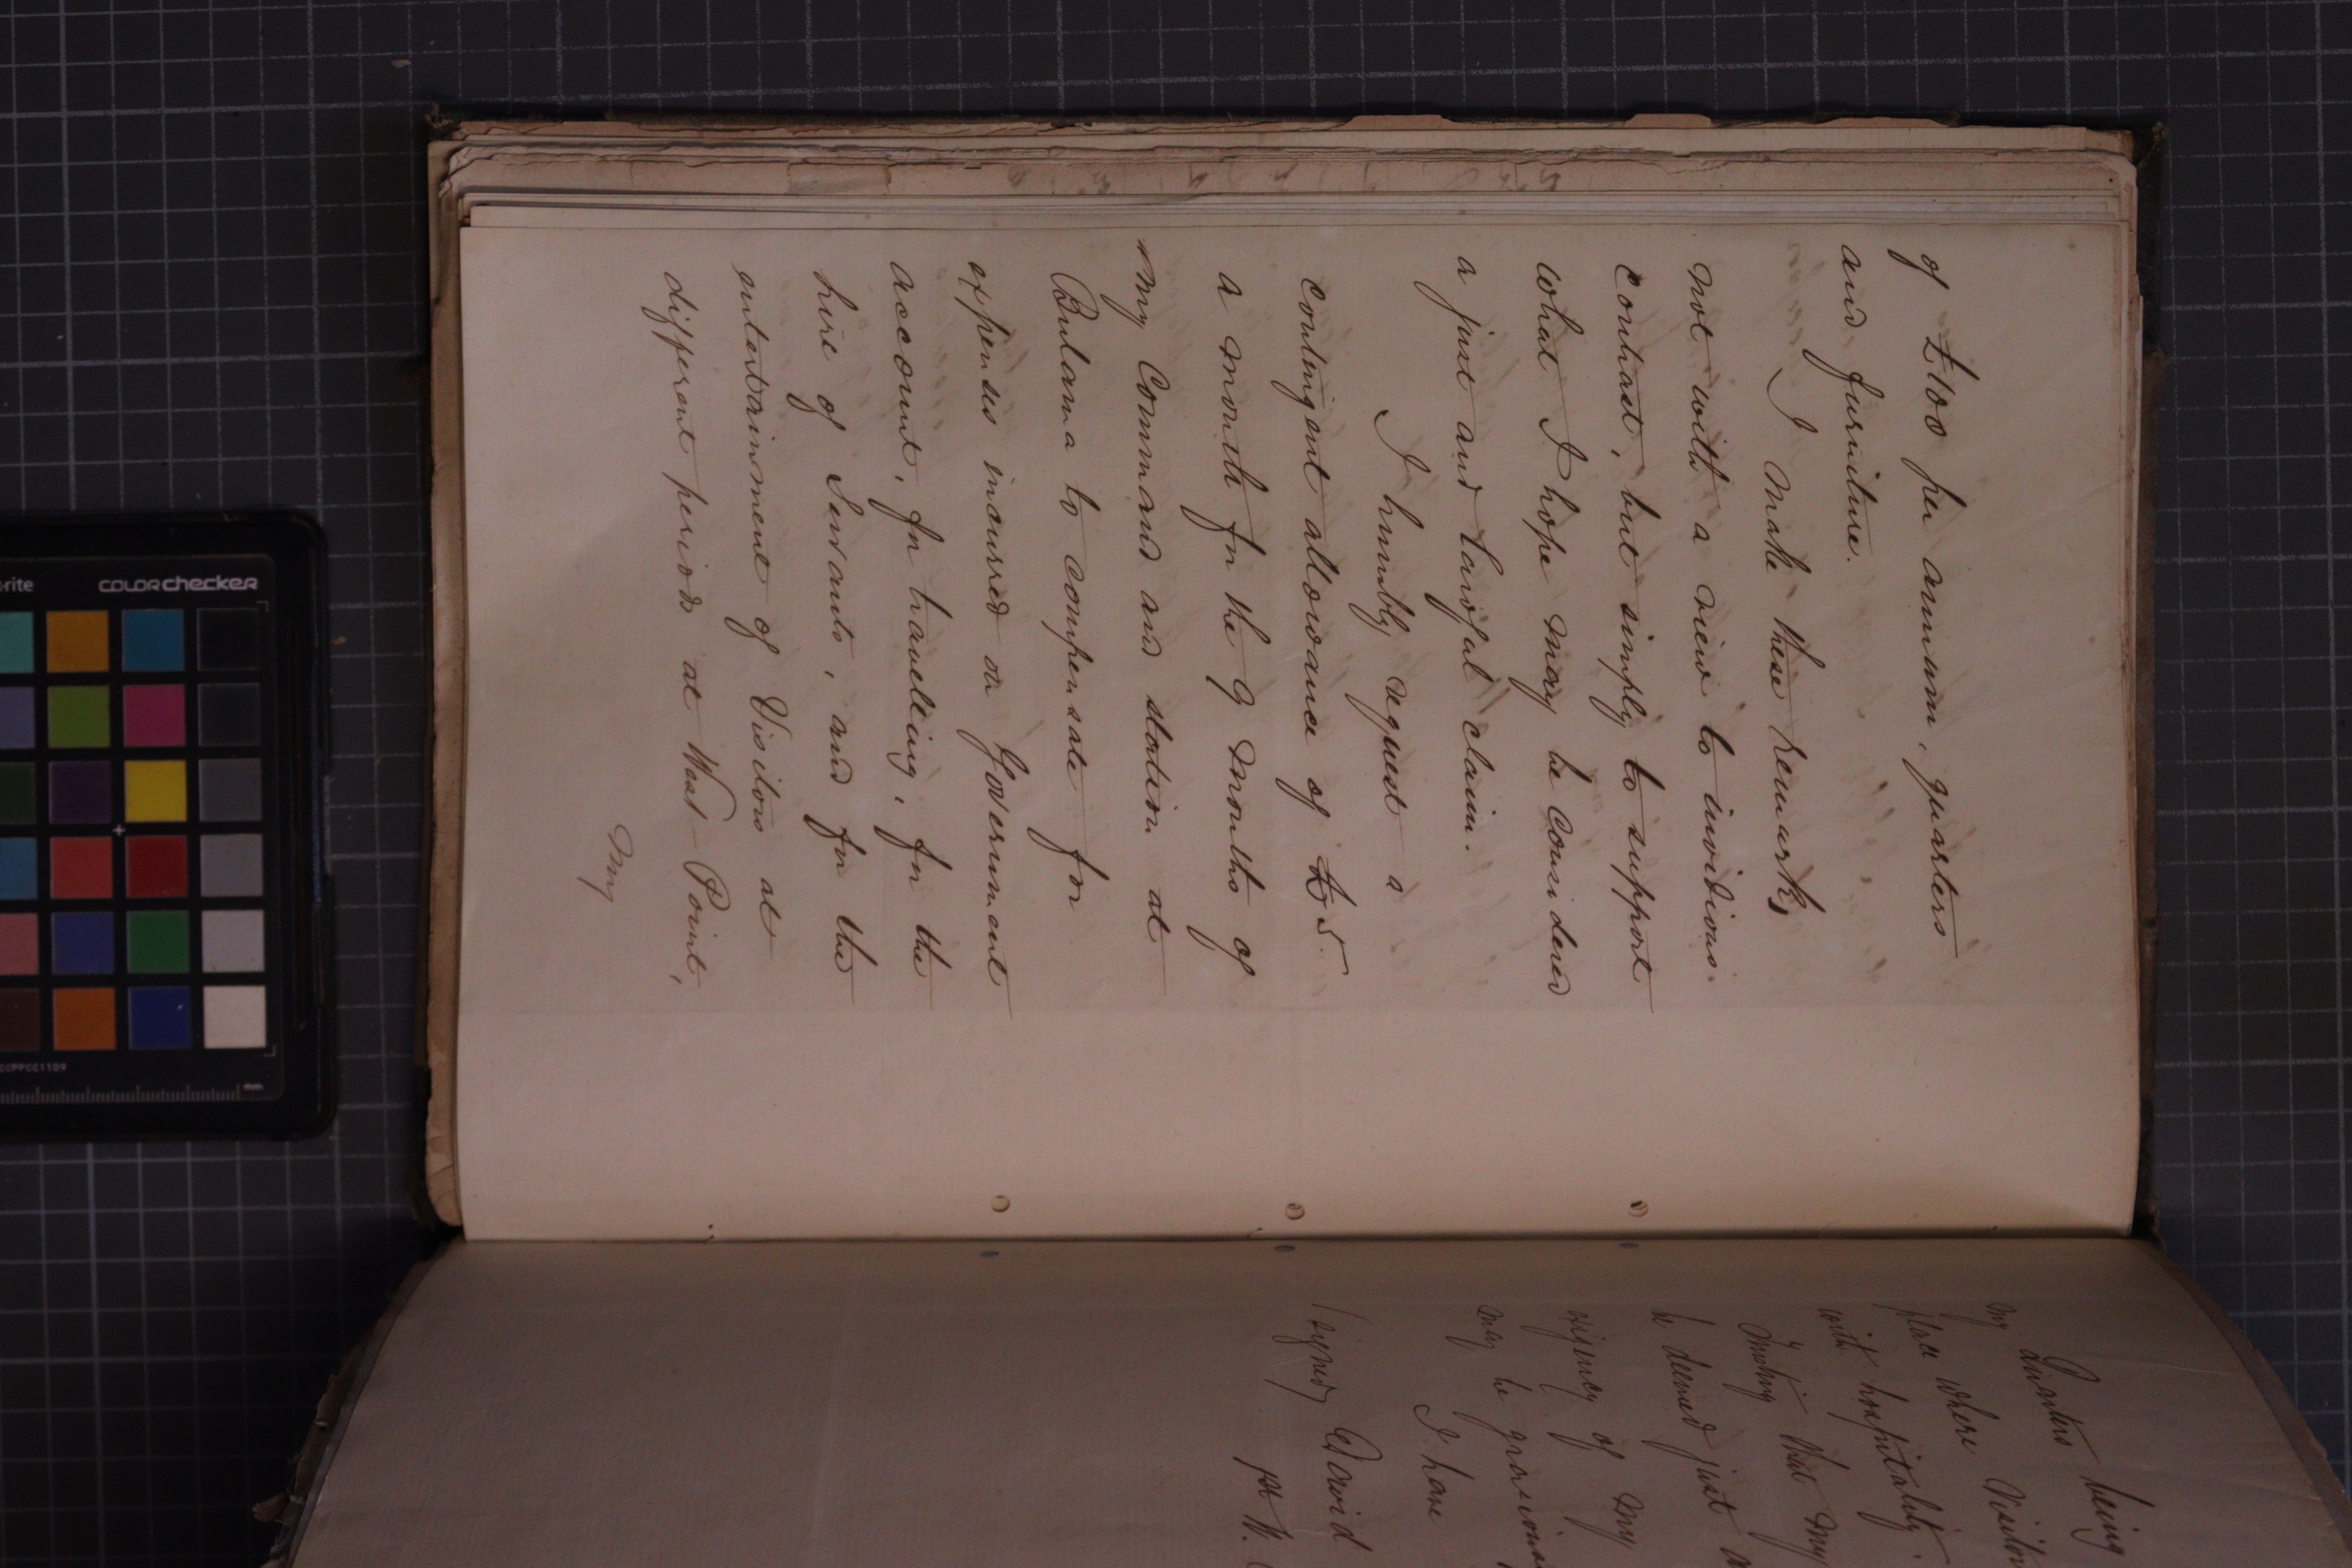 of £100 per annum, quarters
and furniture.
I make these remarks,
not with a view to invidious
contrast, but simply to support
what I hope may be considered
a just and lawful claim.
I humbly request a
contingent allowance of £5.
a month for the 9 months of
my Command and station at
Bulama to compensate for
expenses incurred on Government
account, for traveling, for the
hire of Servants, and for the
entertainment of Visitors at
different periods at West-Point,
My
my Quarters being
place where Visitors
with hospitality.
Trusting that my
be deemed just
exigency of my
may be
I have
(signed) David
1st W.
x-rite
COLORchecker
CCPPCC1109
mm